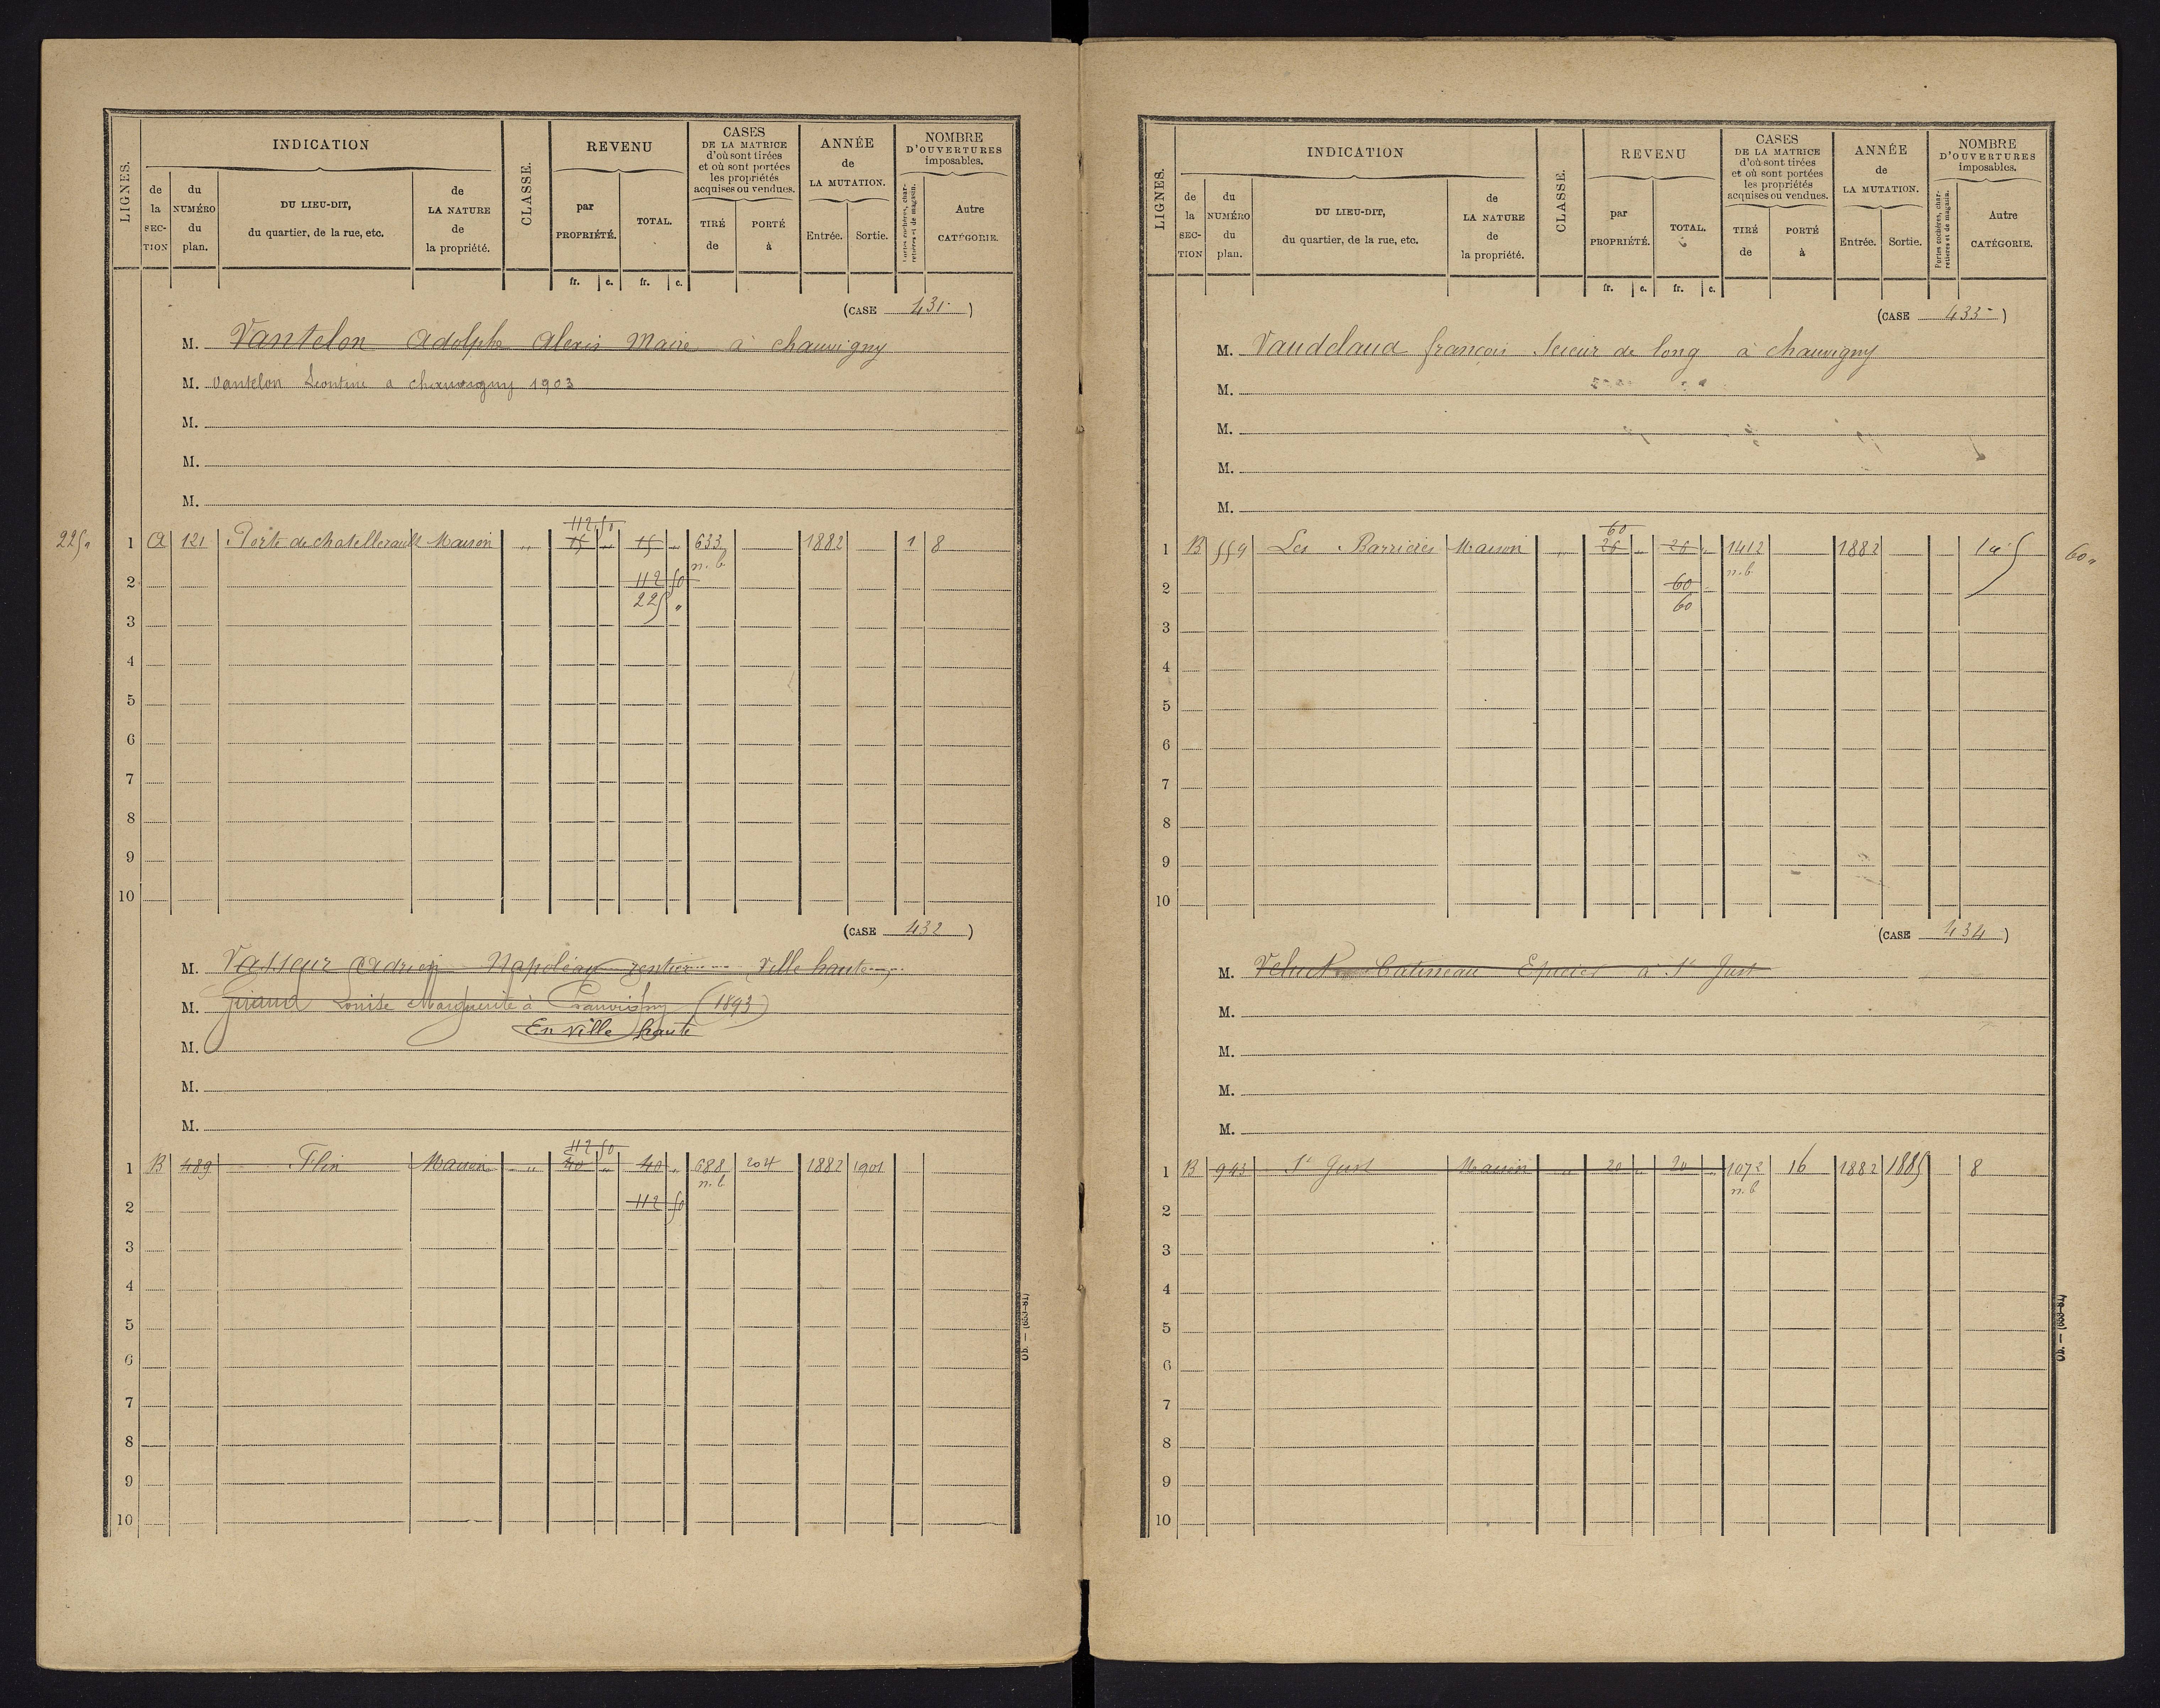 LIGNES.
INDICATION
de la SECTION
du NUMÉRO du plan.
DU LIEU-DIT, du quartier, de la rue, etc.
de LA NATURE de la propriété.
CLASSE.
REVENU
par PROPRIÉTÉ.
TOTAL.
fr. c. fr. c.
CASES DE LA MATRICE d'où sont tirées et où sont portées les propriétés acquises ou vendues.
TIRÉ de
PORTÉ à
ANNÉE de LA MUTATION.
Entrée. Sortie.
NOMBRE D'OUVERTURES imposables.
Portes cochères, charretières et de magasin.
Autre CATÉGORIE.
(CASE 431)
M. Vantelon Adolphe Alexis Maire à chauvigny
M. Vantelon Léontine a chauvigny 1903
M.
M.
M.
112 50
225 " 1 A 121 Porte de chatellerault Maison " 15 " 15 " 633 1882 1 8
n.b.
2 112 50
225 "
3
4
5
6
7
8
9
10
(CASE 432)
M. Vasseur Adrien Napoléon rentier Ville haute
M. Giraud Louise Marguerite à Chauvigny (1893)
En ville haute
M.
M.
M.
112 50
1 B 489 Flin Maison " 40 " 40 " 688 204 1882 1901
n.b.
2 112 50
3
4
5
6
7
8
9
10
Ob. — (653-81)
LIGNES.
INDICATION
de la SECTION
du NUMÉRO du plan.
DU LIEU-DIT, du quartier, de la rue, etc.
de LA NATURE de la propriété.
CLASSE.
REVENU
par PROPRIÉTÉ.
TOTAL.
fr. c. fr. c.
CASES DE LA MATRICE d'où sont tirées et où sont portées les propriétés acquises ou vendues.
TIRÉ de
PORTÉ à
ANNÉE de LA MUTATION.
Entrée. Sortie.
NOMBRE D'OUVERTURES imposables.
Portes cochères, charretières et de magasin.
Autre CATÉGORIE.
(CASE 433)
M. Vaudelaud françois Scieur de long à chauvigny
M.
M.
M.
M.
60
1 B 559 Les Barrières Maison " 26 " 26 " 1412 1882 5 60 "
n.b.
2 60
60
3
4
5
6
7
8
9
10
(CASE 434)
M. Catineau Epicier à St Just
M.
M.
M.
M.
1 B 943 St Just Maison " 20 " 20 " 1072 16 1882 1885 8
n.b.
2
3
4
5
6
7
8
9
10
Ob. — (653-81)